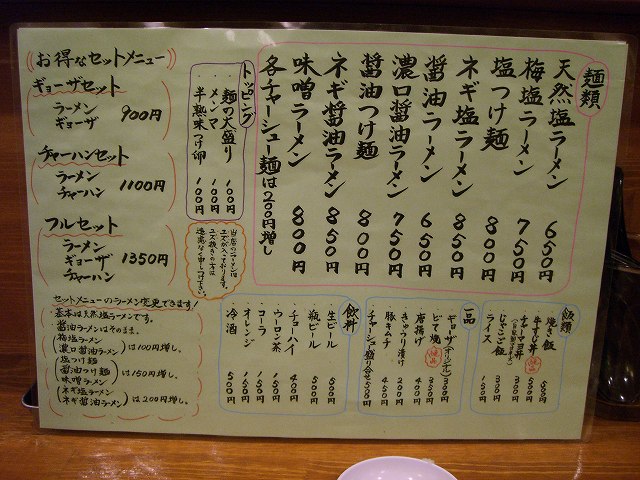 麺類
天然塩ラーメン 650円
梅塩ラーメン 750円
塩つけ麺 800円
ネギ塩ラーメン 850円
醤油ラーメン 650円
濃口醤油ラーメン 750円
醤油つけ麺 800円
ネギ醤油ラーメン 850円
味噌ラーメン 800円
各チャーシュー麺は200円増し
トッピング
麺の大盛り 100円
メンマ 100円
半熟味つけ卵 100円
お得なセットメニュー
ギョーザセット
ラーメン
ギョーザ
900円
チャーハンセット
ラーメン
チャーハン
1100円
フルセット
ラーメン
ギョーザ
チャーハン
1350円
セットメニューのラーメン変更できます!
基本は天然塩ラーメンです。
醤油ラーメンはそのまま、
(梅塩ラーメン
濃口醤油ラーメン)は100円増し、
(塩つけ麺
醤油つけ麺
味噌ラーメン)は150円増し、
(ネギ塩ラーメン
ネギ醤油ラーメン)は200円増し、
飯類
焼き飯
牛すじ丼
チャーマヨ丼
じゃこご飯 300円
ライス 150円
一品
ギョーザ
どて焼 350円
唐揚げ 400円
きゅうり漬け 200円
豚キムチ 450円
チャーシュー盛り合せ
飲料
生ビール 500円
瓶ビール 500円
チューハイ 400円
ウーロン茶 150円
コーラ 150円
オレンジ 150円
冷酒 500円